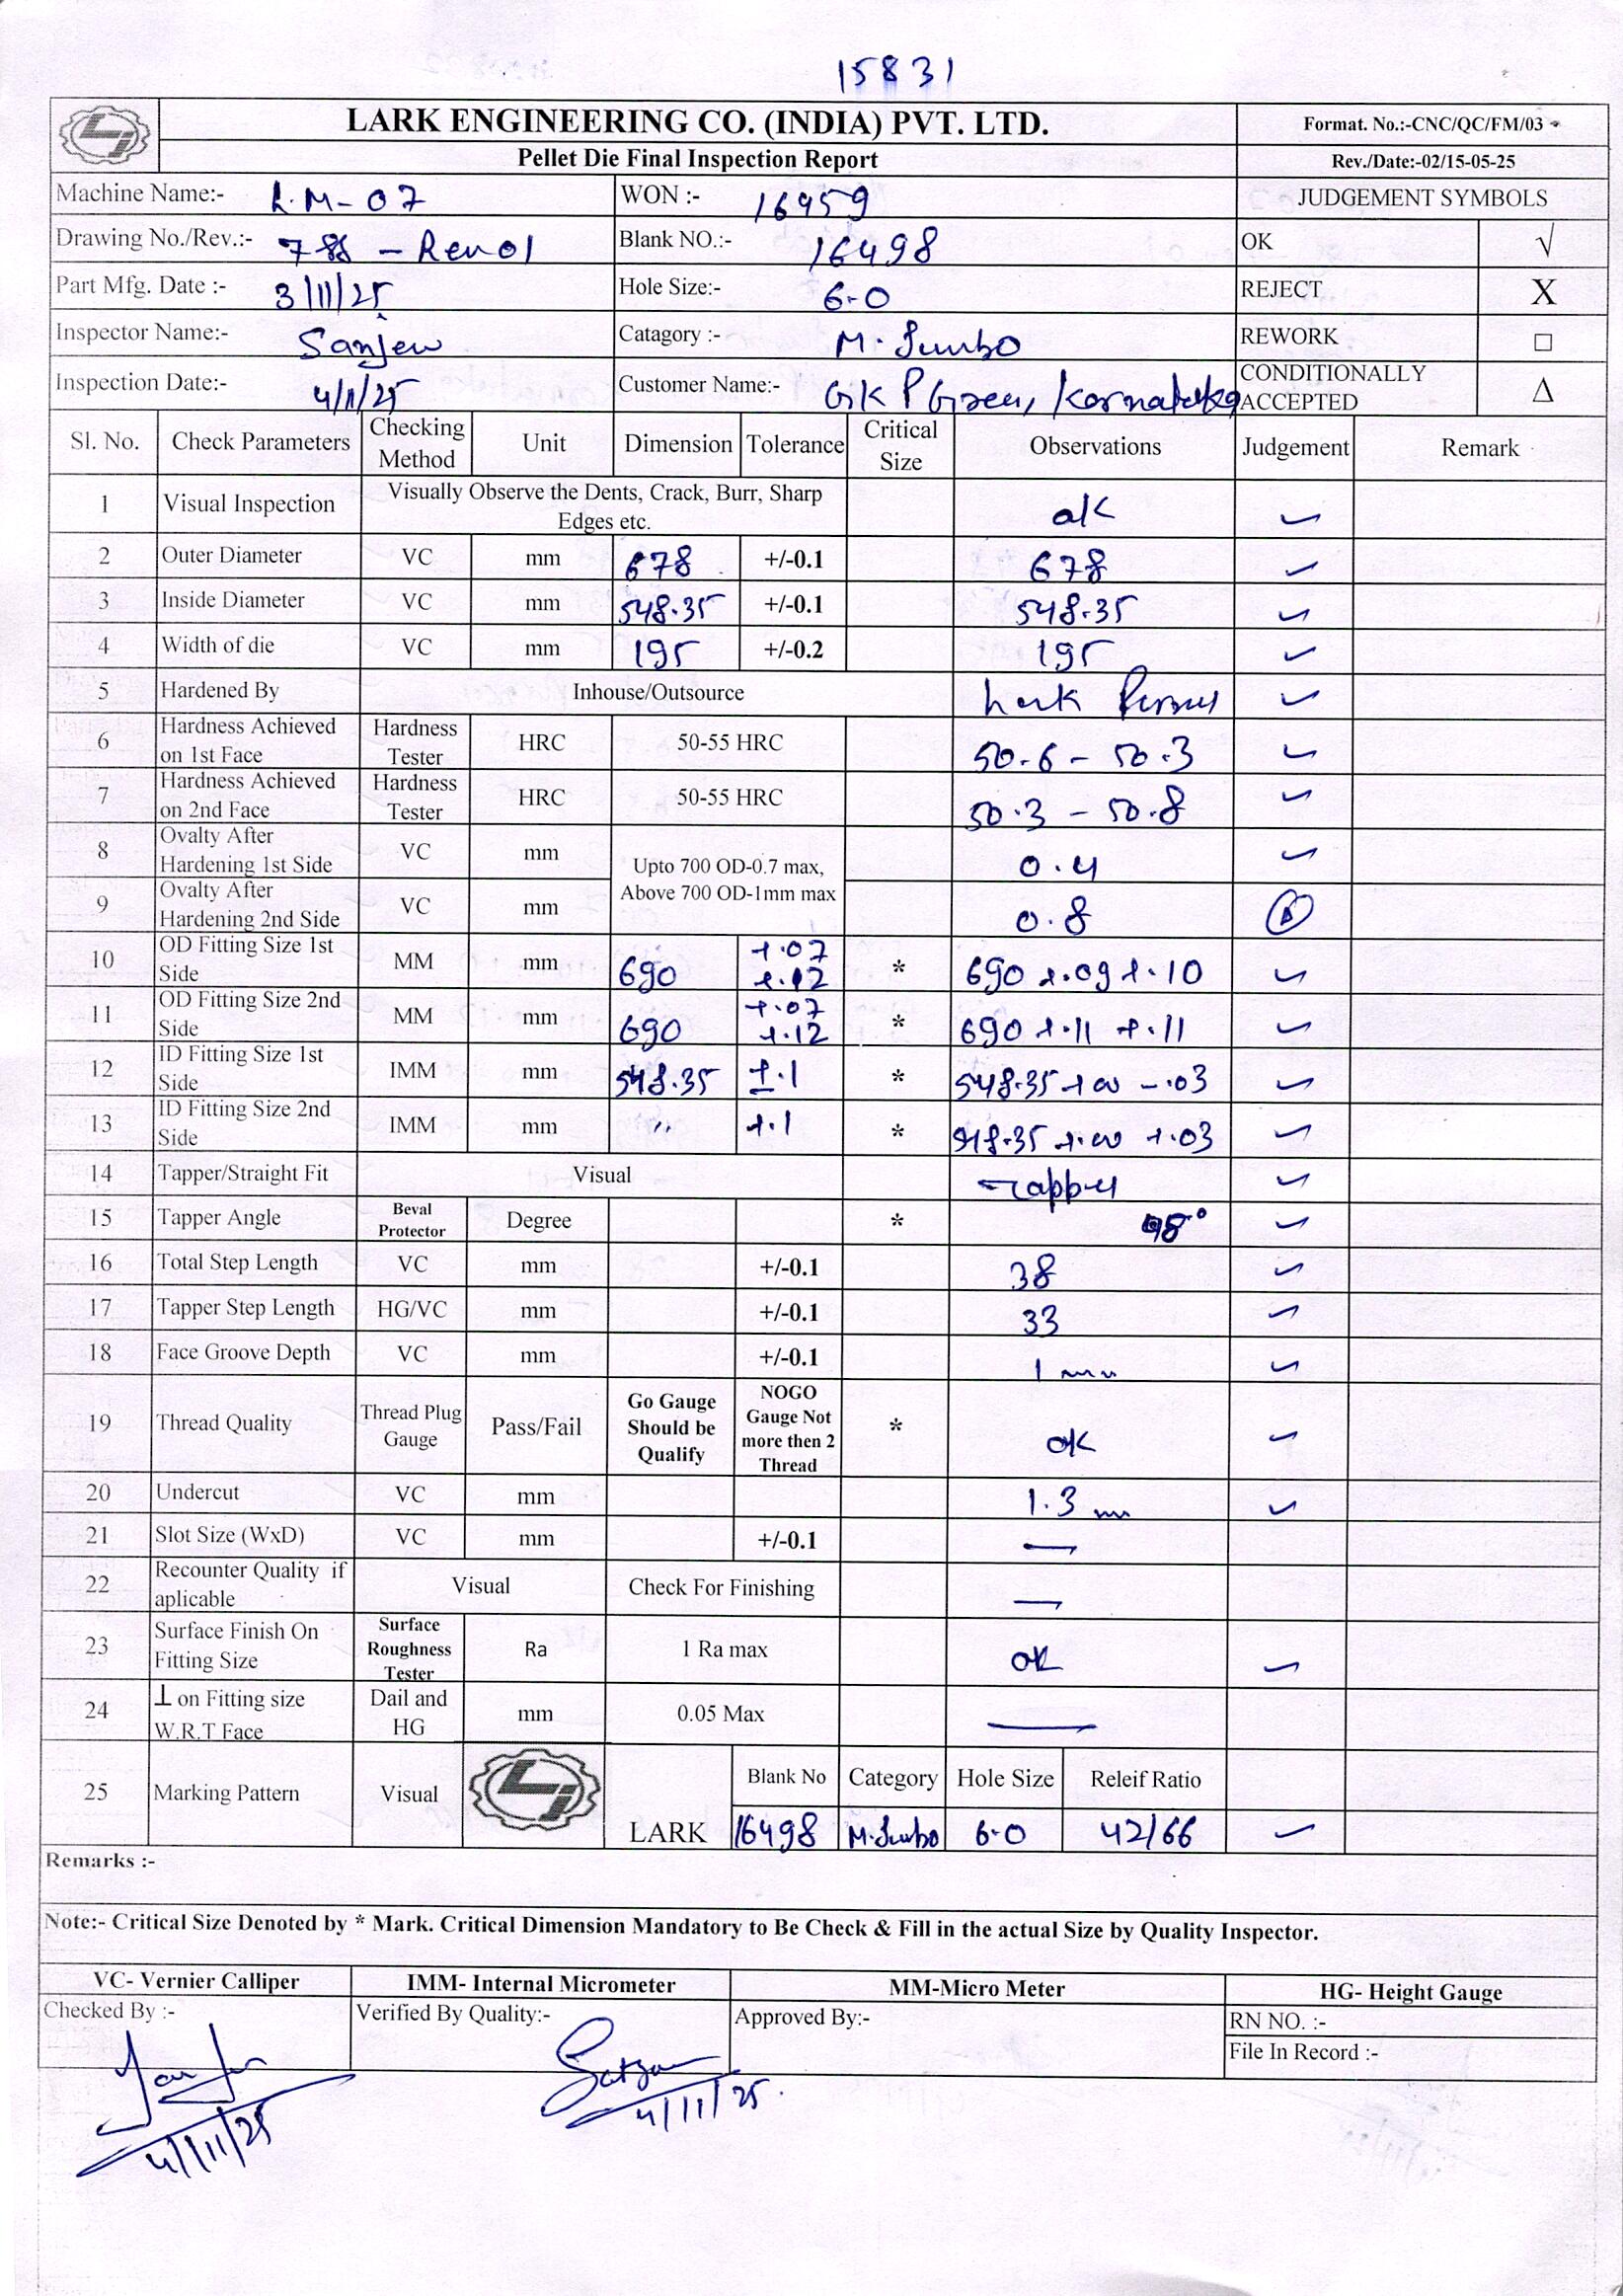 15831
LARK ENGINEERING CO. (INDIA) PVT. LTD.
Format. No.:-CNC/QC/FM/03
Pellet Die Final Inspection Report
Rev./Date:-02/15-05-25
Machine Name:- L.M-07 WON :- 16959 JUDGEMENT SYMBOLS
Drawing No./Rev.:- - Rev01 Blank NO.:- 16498 OK √
Part Mfg. Date :- 3/11/25 Hole Size:- 6.0 REJECT X
Inspector Name:- Sanjew Catagory :- M.Jumbo REWORK □
Inspection Date:- 4/11/25 Customer Name:- GK P Green, Karnataka CONDITIONALLY ACCEPTED Δ
Sl. No. Check Parameters Checking Method Unit Dimension Tolerance Critical Size Observations Judgement Remark
1 Visual Inspection Visually Observe the Dents, Crack, Burr, Sharp Edges etc. ok ✓
2 Outer Diameter VC mm 678 +/-0.1 678 ✓
3 Inside Diameter VC mm 548.35 +/-0.1 548.35 ✓
4 Width of die VC mm 195 +/-0.2 195 ✓
5 Hardened By Inhouse/Outsource Lark ✓
6 Hardness Achieved on 1st Face Hardness Tester HRC 50-55 HRC 50.6 - 50.3 ✓
7 Hardness Achieved on 2nd Face Hardness Tester HRC 50-55 HRC 50.3 - 50.8 ✓
8 Ovalty After Hardening 1st Side VC mm Upto 700 OD-0.7 max, Above 700 OD-1mm max 0.4 ✓
9 Ovalty After Hardening 2nd Side VC mm 0.8
10 OD Fitting Size 1st Side MM mm 690 +.07 +.12 * 690 +.09 +.10 ✓
11 OD Fitting Size 2nd Side MM mm 690 +.07 +.12 * 690 +.11 +.11 ✓
12 ID Fitting Size 1st Side IMM mm 548.35 ±.1 * 548.35 +00 -.03 ✓
13 ID Fitting Size 2nd Side IMM mm " +.1 * 548.35 +.00 +.03 ✓
14 Tapper/Straight Fit Visual Tapper ✓
15 Tapper Angle Beval Protector Degree * ✓
16 Total Step Length VC mm +/-0.1 38 ✓
17 Tapper Step Length HG/VC mm +/-0.1 33 ✓
18 Face Groove Depth VC mm +/-0.1 1 mm ✓
19 Thread Quality Thread Plug Gauge Pass/Fail Go Gauge Should be Qualify NOGO Gauge Not more then 2 Thread * ok ✓
20 Undercut VC mm 1.3 mm ✓
21 Slot Size (WxD) VC mm +/-0.1 —
22 Recounter Quality if aplicable Visual Check For Finishing —
23 Surface Finish On Fitting Size Surface Roughness Tester Ra 1 Ra max ok ✓
24 ⊥ on Fitting size W.R.T Face Dail and HG mm 0.05 Max —
25 Marking Pattern Visual LARK Blank No Category Hole Size Releif Ratio
16498 M.Jumbo 6.0 42/66 ✓
Remarks :-
Note:- Critical Size Denoted by * Mark. Critical Dimension Mandatory to Be Check & Fill in the actual Size by Quality Inspector.
VC- Vernier Calliper IMM- Internal Micrometer MM-Micro Meter HG- Height Gauge
Checked By :- Verified By Quality:- Approved By:- RN NO. :-
File In Record :-
4/11/25 4/11/25.